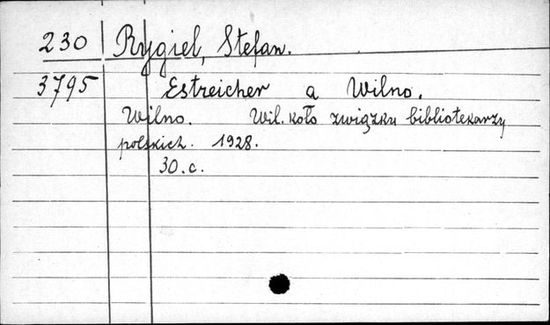 230 Rygiel, Stefan.
3795 Estreicher a Wilno.
Wilno. Wil. koło związku bibliotekarzy
polskich. 1928.
30.c.